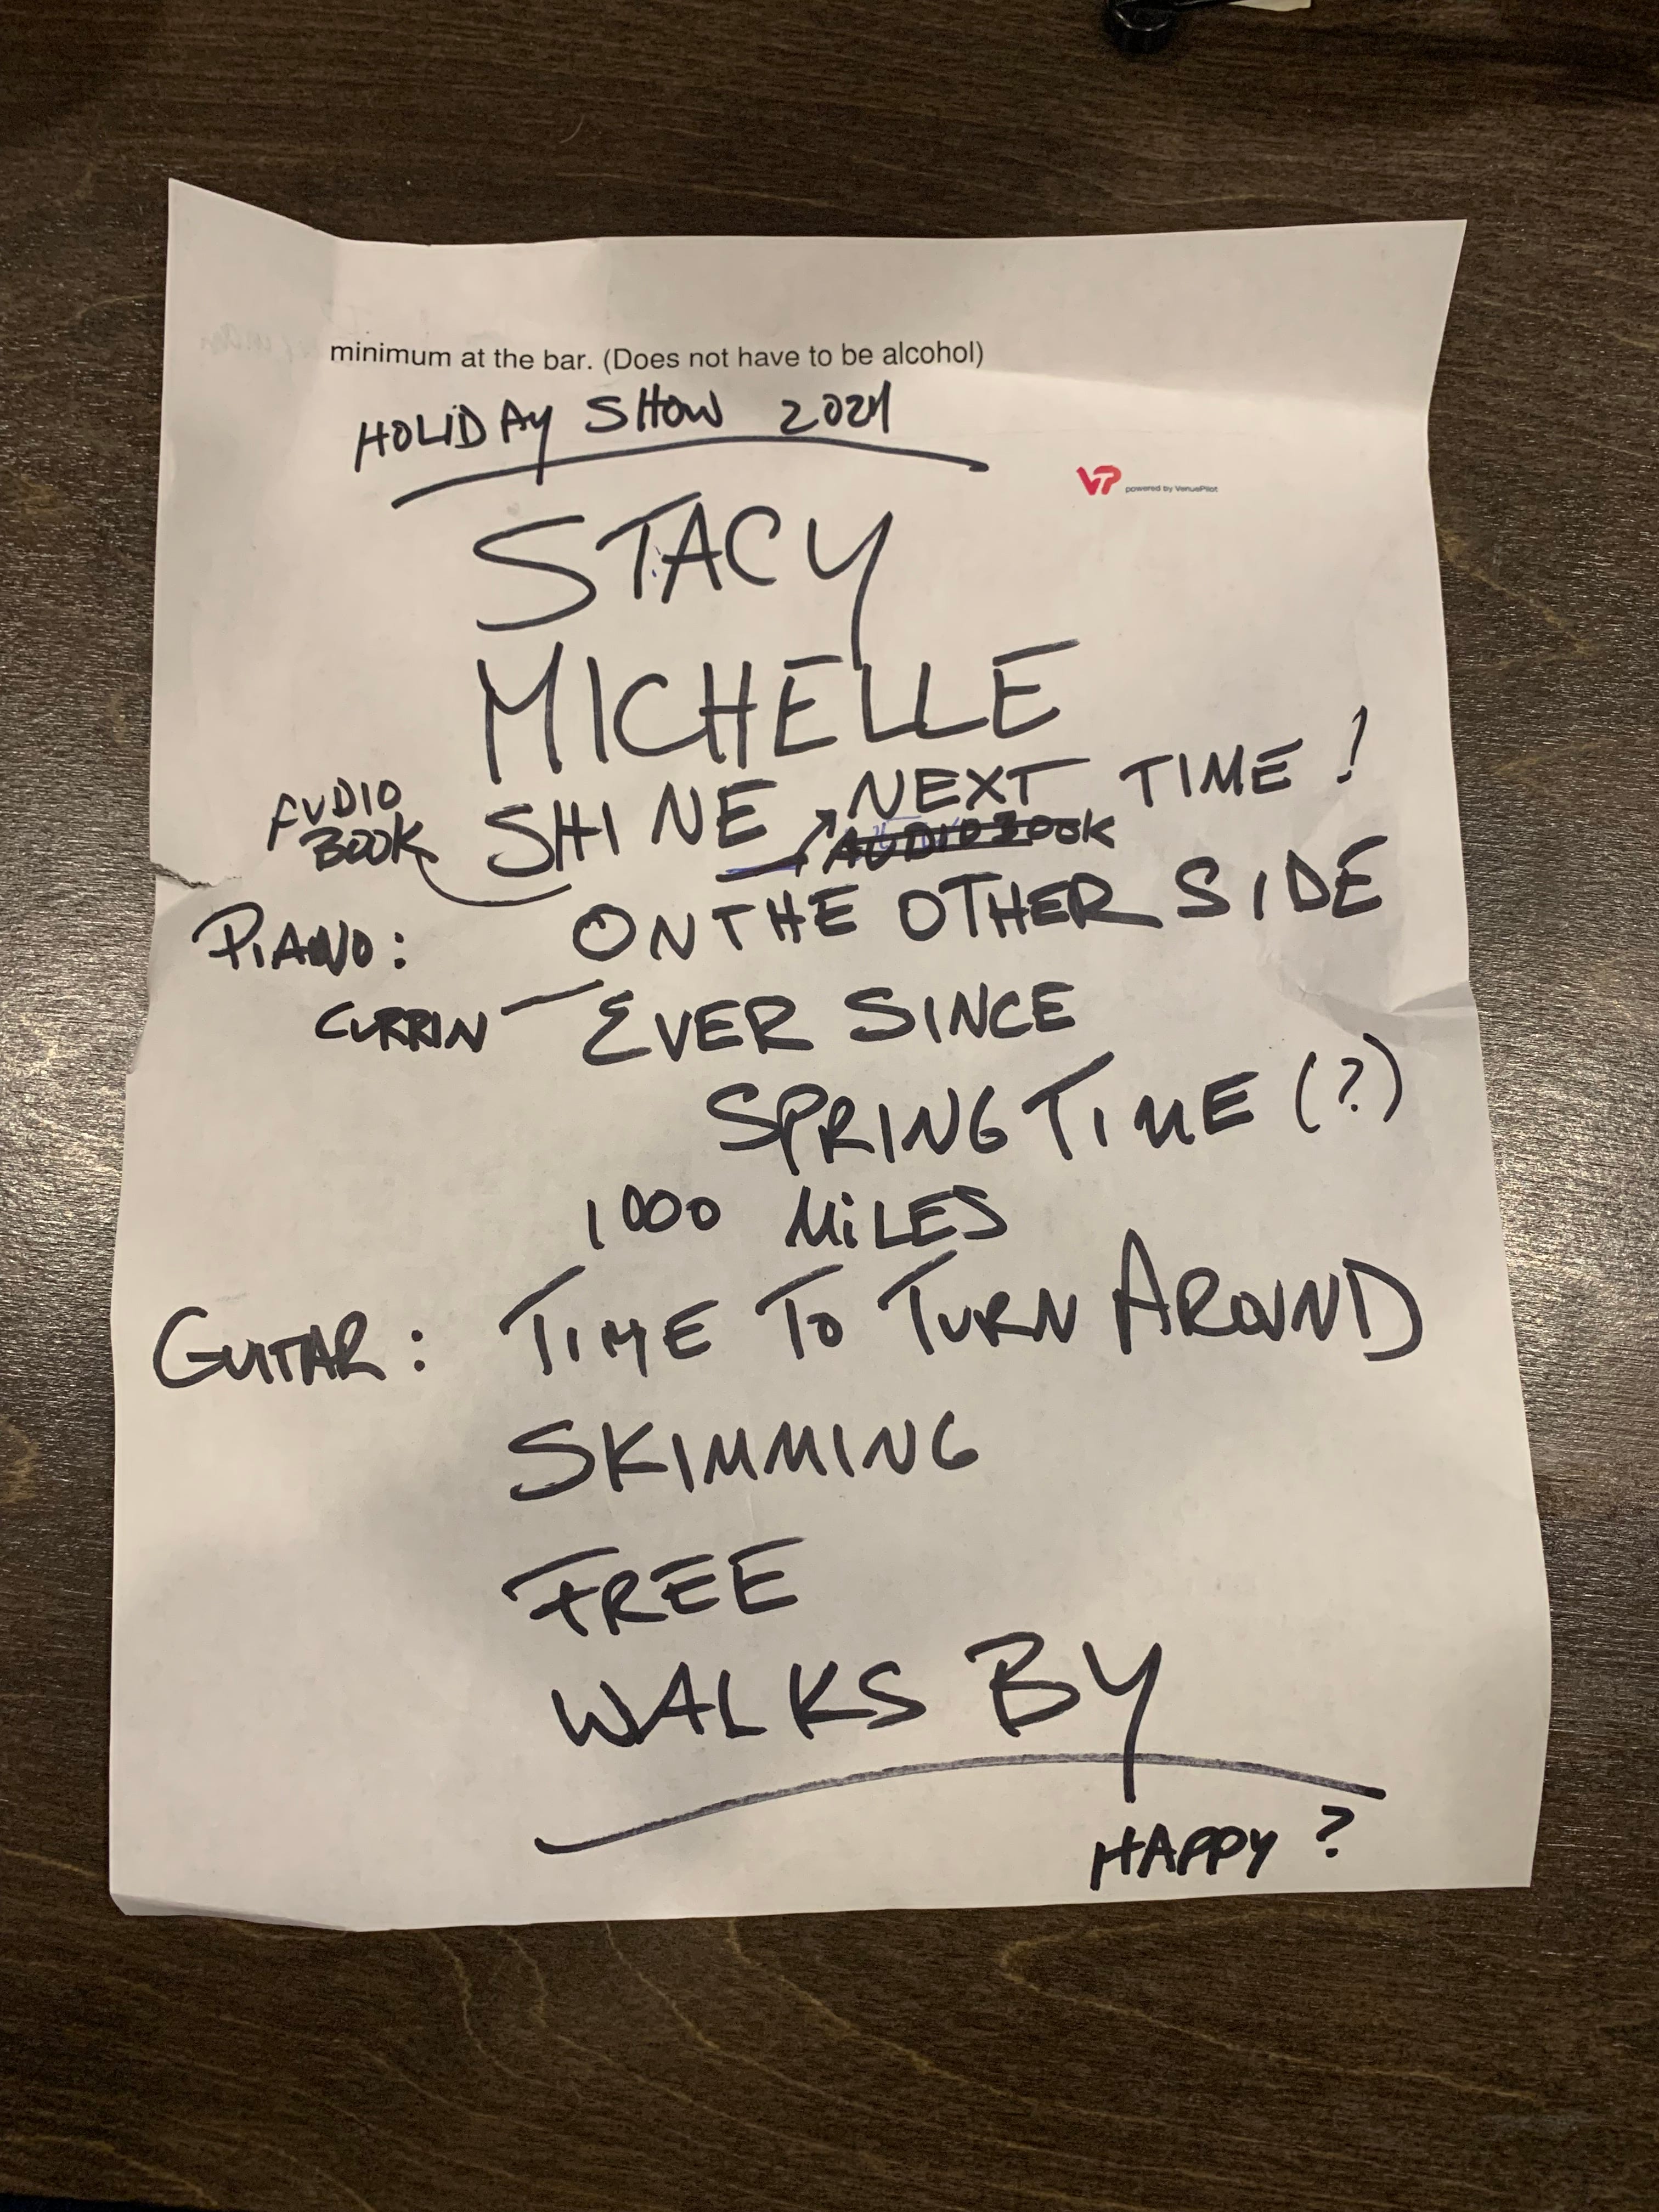 minimum at the bar. (Does not have to be alcohol)
HOLIDAY SHOW 2024
VP powered by VenuePilot
STACY
MICHELLE
AUDIO
BOOK
SHINE NEXT TIME!
AUDIO BOOK
PIANO: ON THE OTHER SIDE
CURRIN — EVER SINCE
SPRING TIME (?)
1000 MILES
GUITAR: TIME TO TURN AROUND
SKIMMING
FREE
WALKS BY
HAPPY?